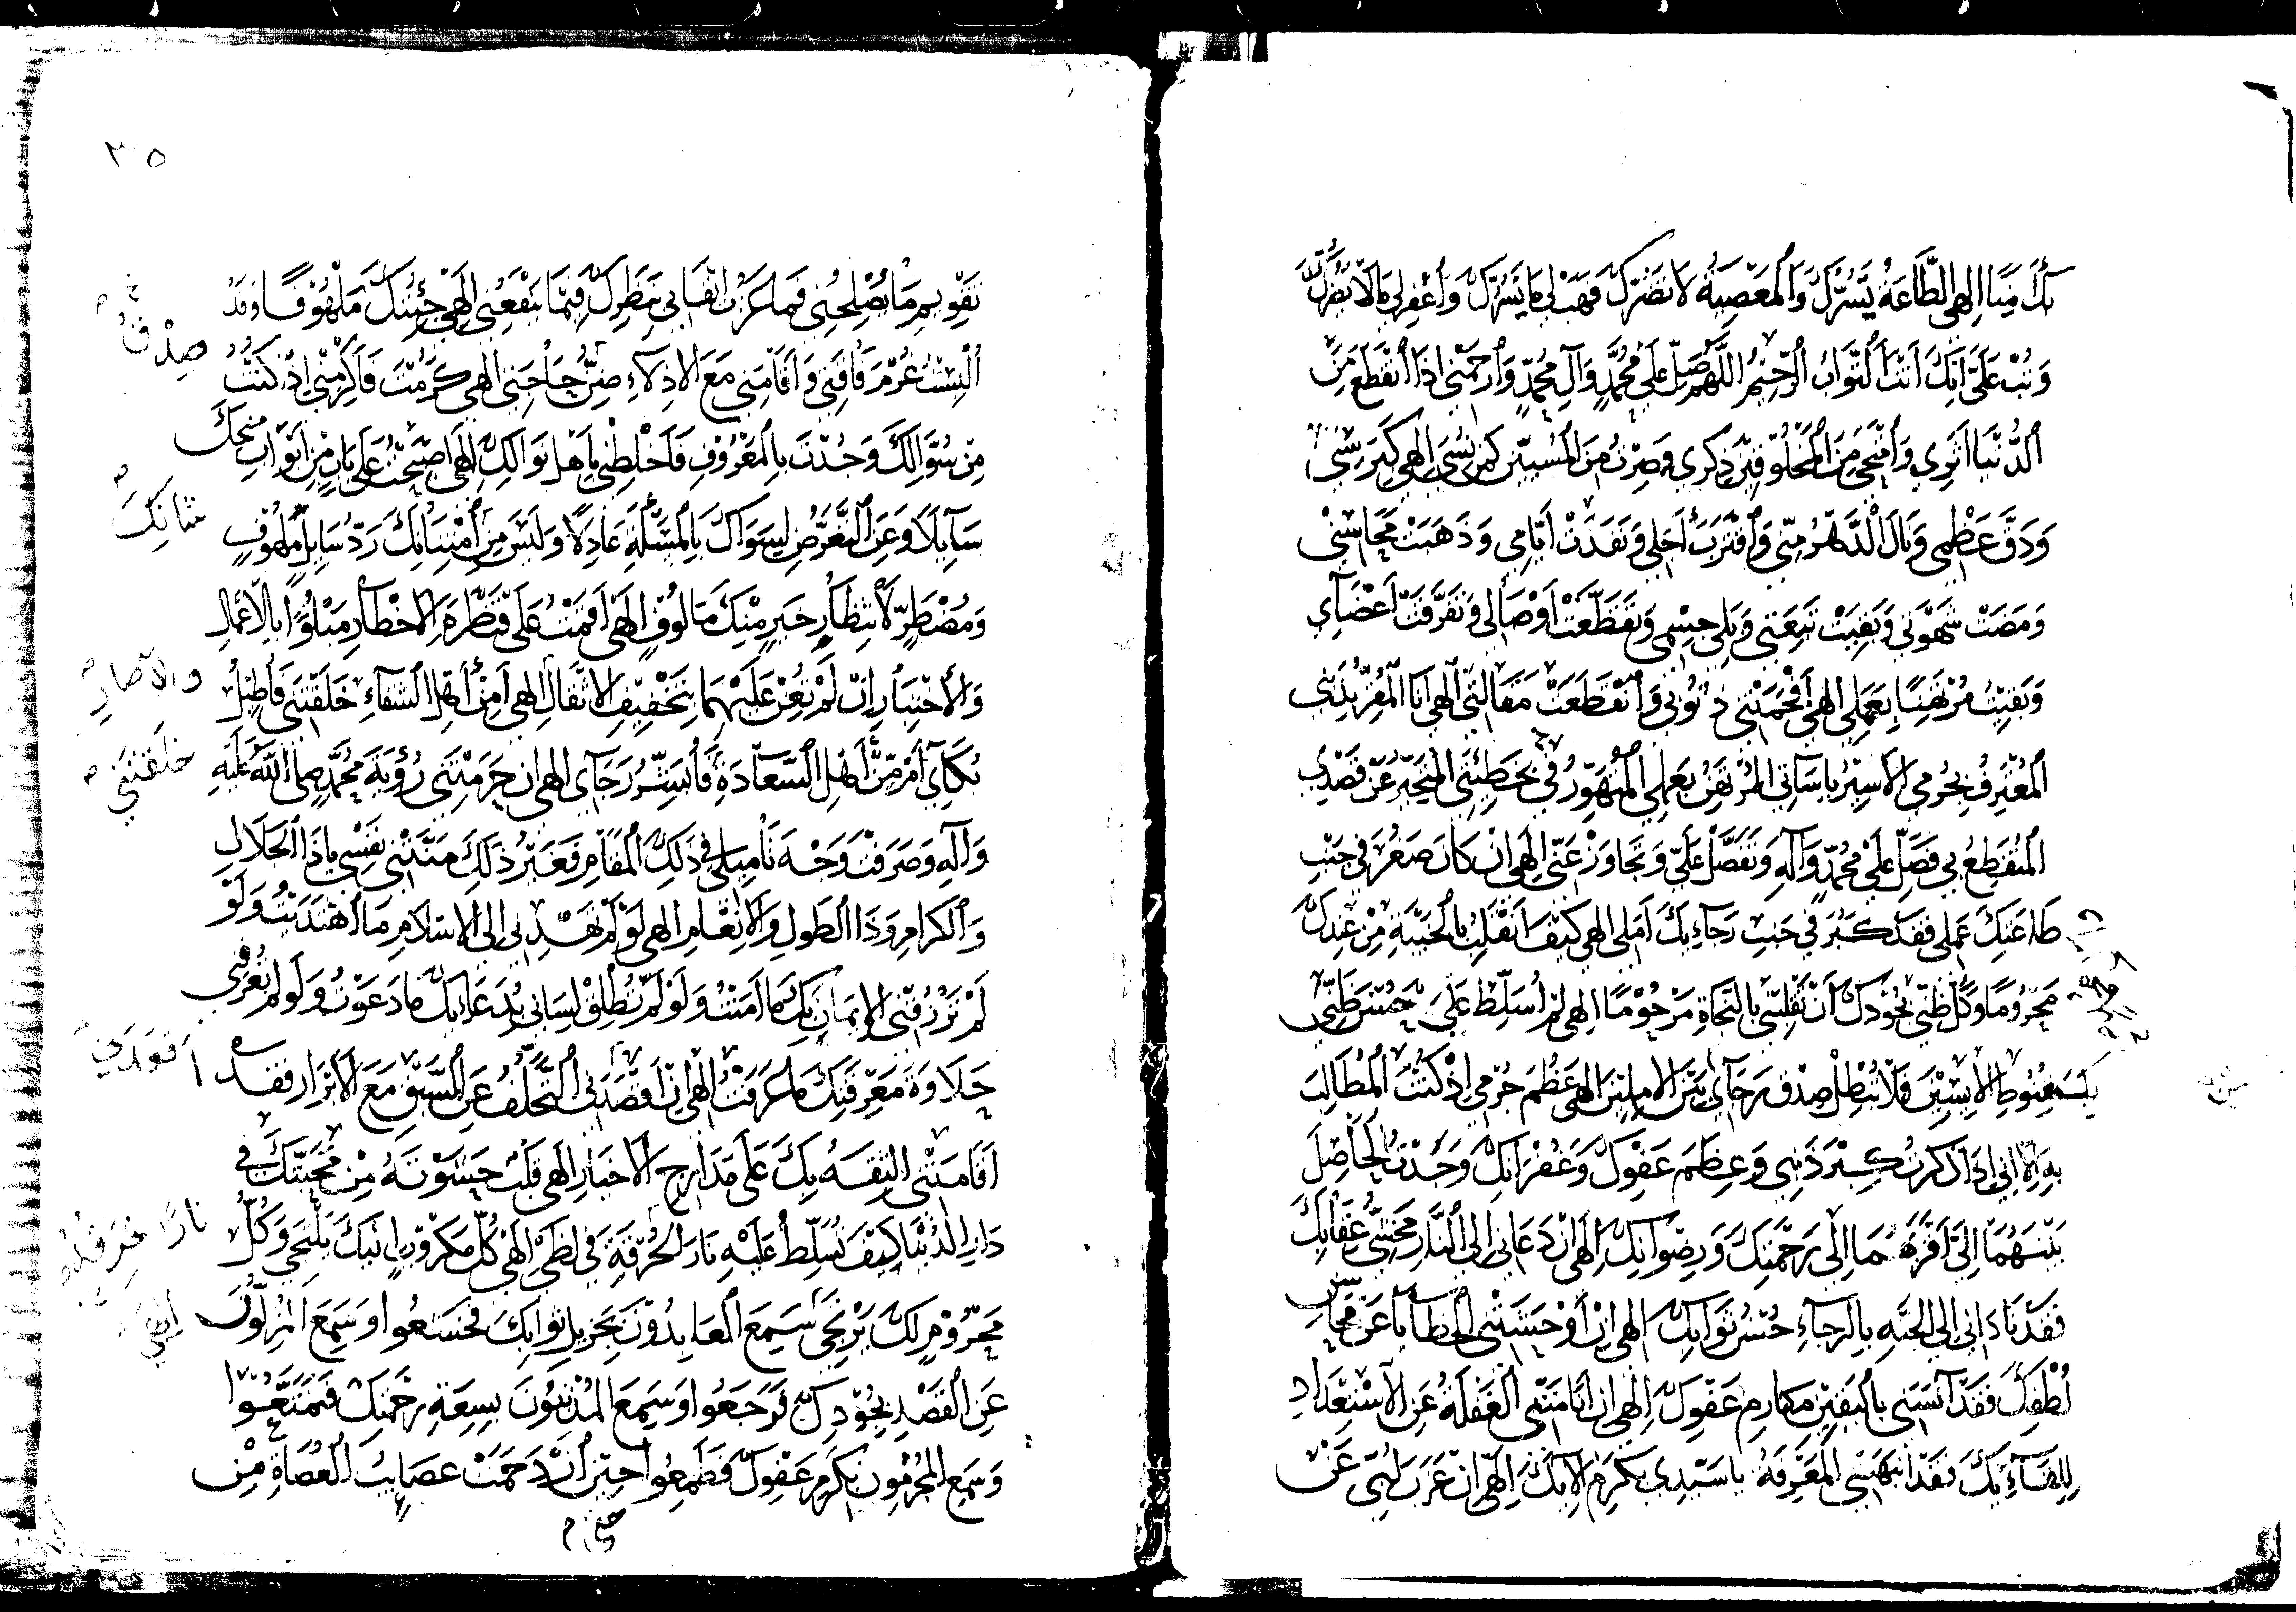 بك منبا الهى الطَّاعَةُ تَسُرُّكَ وَالْمَعْصِيَةُ لَا تَضُرُّكَ فَهَبْ لِى مَا يَسُرُّكَ وَاغْفِرْ لِى مَا لَا يَضُرُّكَ
وَتُبْ عَلَىَّ اِنَّكَ أَنْتَ التَّوَّابُ الرَّحِيْمُ اللَّهُمَّ صَلِّ عَلَى مُحَمَّدٍ وَآلِ مُحَمَّدٍ وَارْحَمْنِى اِذَا انْقَطَعَ مِنَ
الدُّنْيَا اَثَرِى وَامْتَحَى مِنَ الْمَخْلُوْقِيْنَ ذِكْرِى وَصِرْتُ مِنَ الْمَنْسِيِّيْنَ كَمَنْ نُسِىَ الهى كَبِرَ سِنِّى
وَدَقَّ عَظْمِى وَنَالَ الدَّهْرُ مِنِّى وَاقْتَرَبَ أَجَلِى وَنَفَدَتْ أَيَّامِى وَذَهَبَتْ مَحَاسِنِىْ
وَمَضَتْ شَهْوَتِى وَبَقِيَتْ تَبِعَتِى وَبَلِىَ جِسْمِى وَتَقَطَّعَتْ أَوْصَالِى وَتَفَرَّقَتْ أَعْضَآئِى
وَبَقِيْتُ مُرْتَهَنًا بِعَمَلِى الهى أَفْحَمَتْنِى ذُنُوْبِى وَانْقَطَعَتْ مَقَالَتِى الهى اَنَا الْمُقِرُّ بِذَنْبِى
الْمُعْتَرِفُ بِجُرْمِى الْاَسِيْرُ بِاِسَآئَتِى الْمُرْتَهَنُ بِعَمَلِى الْمُتَهَوِّرُ فِى خَطِيْئَتِى الْمُتَحَيِّرُ عَنْ قَصْدِى
الْمُنْقَطِعُ بِى فَصَلِّ عَلَى مُحَمَّدٍ وَآلِهِ وَتَفَضَّلْ عَلَىَّ وَتَجَاوَزْ عَنِّى الهى اِنْ كَانَ صَغُرَ فِى جَنْبِ
طَاعَتِكَ عَمَلِى فَقَدْ كَبُرَ فِى جَنْبِ رَجَآئِكَ أَمَلِى الهى كَيْفَ اَنْقَلِبُ بِالْخَيْبَةِ مِنْ عِنْدِكَ
مَحْرُوْمًا وَكُلُّ ظَنِّى بِجُوْدِكَ اَنْ تَقْلِبَنِى بِالنَّجَاةِ مَرْحُوْمًا الهى لَمْ اُسَلِّطْ عَلَى حُسْنِ ظَنِّى
بِكَ قُنُوْطَ الْآيِسِيْنَ فَلَا تُبْطِلْ صِدْقَ رَجَآئِى بَيْنَ الْآمِلِيْنَ الهى عَظُمَ جُرْمِى اِذْ كُنْتَ الْمُطَالِبَ
بِهِ اِلَّا اَنِّى اِذَا ذَكَرْتُ كِبَرَ ذَنْبِى وَعِظَمَ عَفْوِكَ وَغُفْرَانِكَ وَجَدْتُ الْحَاصِلَ
بَيْنَهُمَا اِلَىَّ أَقْرَبَهُمَا اِلَى رَحْمَتِكَ وَرِضْوَانِكَ الهى اِنْ دَعَانِى اِلَى النَّارِ مَخْشِىُّ عِقَابِكَ
فَقَدْ نَادَانِى اِلَى الْجَنَّةِ بِالرَّجَآءِ حُسْنُ ثَوَابِكَ الهى اِنْ أَوْحَشَتْنِى الْخَطَايَا عَنْ مَحَاسِنِ
لُطْفِكَ فَقَدْ آنَسَتْنِى بِالْيَقِيْنِ مَكَارِمُ عَفْوِكَ الهى اِنْ اَنَامَتْنِى الْغَفْلَةُ عَنِ الْاِسْتِعْدَادِ
لِلِقَآئِكَ فَقَدْ اَنْبَهَتْنِى الْمَعْرِفَةُ يَا سَيِّدِى بِكَرَمِ آلَائِكَ الهى اِنْ عَزَبَ لُبِّى عَنْ
٣٥
تَقْوِيْمِ مَا يُصْلِحُنِى فَمَا عَزَبَ اِيْقَانِى بِنَظَرِكَ فِيْمَا يَنْفَعُنِى الهى جِئْتُكَ مَلْهُوْفًا وَقَدْ
اُلْبِسْتُ عُدْمَ فَاقَتِى وَاَقَامَنِى مَعَ الْاَذِلَّاءِ ضُرُّ حَاجَتِى الهى كَرُمْتَ فَاَكْرِمْنِى اِذْ كُنْتُ
مِنْ سُؤَّالِكَ وَجُدْتَ بِالْمَعْرُوْفِ فَاخْلِطْنِى بِأَهْلِ نَوَالِكَ الهى اَصْبَحْتُ عَلَى بَابٍ مِنْ اَبْوَابِ مِنَحِكَ
سَآئِلًا وَعَنِ التَّعَرُّضِ لِسِوَاكَ بِالْمَسْئَلَةِ عَادِلًا وَلَيْسَ مِنِ امْتِنَانِكَ رَدُّ سَائِلٍ مَلْهُوْفٍ
وَمُضْطَرٍّ لِانْتِظَارِ خَيْرٍ مِنْكَ مَالُوْفٍ الهى اَقَمْتُ عَلَى قَنْطَرَةِ الْاَخْطَارِ مَبْلُوًّا بِالْاَعْمَالِ
وَالْاِخْتِبَارِ اِنْ لَمْ تُعِنْ عَلَيْهِمَا بِتَخْفِيْفِ الْاَثْقَالِ الهى اَمِنْ أَهْلِ الشَّقَآءِ خَلَقْتَنِى فَاُطِيْلَ
بُكَآئِى اَمْ مِنْ أَهْلِ السَّعَادَةِ فَاُبَشِّرَ رَجَآئِى الهى اِنْ حَرَمْتَنِى رُؤْيَةَ مُحَمَّدٍ صلى اللَّهُ عَلَيْهِ
وَآلِهِ وَصَرَفْتَ وَجْهَ تَامِيْلِى فِى ذَلِكَ الْمَقَامِ فَغَيْرُ ذَلِكَ مَنَّتْنِى نَفْسِى يَا ذَا الْجَلَالِ
وَالْاِكْرَامِ وَذَا الطَّوْلِ وَالْاِنْعَامِ الهى لَوْ لَمْ تَهْدِنِى اِلَى الْاِسْلَامِ مَا اهْتَدَيْتُ وَلَوْ
لَمْ تَرْزُقْنِى الْاِيْمَانَ بِكَ مَا امَنْتُ وَلَوْ لَمْ تُطْلِقْ لِسَانِى بِدُعَائِكَ مَا دَعَوْتُ وَلَوْ لَمْ تُعَرِّفْنِى
حَلَاوَةَ مَعْرِفَتِكَ مَا عَرَفْتُ الهى اِنْ اَقْصَدَنِى التَّخَلُّفُ عَنِ السَّبْقِ مَعَ الْاَبْرَارِ فَقَدْ
اَقَامَتْنِى الثِّقَةُ بِكَ عَلَى مَدَارِجِ الْاَخْيَارِ الهى قَلْبٌ حَشَوْتَهُ مِنْ مَحَبَّتِكَ فِى
دَارِ الدُّنْيَا كَيْفَ تُسَلِّطُ عَلَيْهِ نَارَ الْحُرْقَةِ فِى لَظَى الهى كُلُّ مَكْرُوْبٍ اِلَيْكَ يَلْتَجِى وَكُلُّ
مَحْرُوْمٍ لَكَ يَرْتَجِى سَمِعَ الْعَابِدُوْنَ بِجَزِيْلِ ثَوَابِكَ فَخَشَعُوا وَسَمِعَ الْمُزِلُّوْنَ
عَنِ الْقَصْدِ بِجُوْدِكَ فَرَجَعُوا وَسَمِعَ الْمُذْنِبُوْنَ بِسِعَةِ رَحْمَتِكَ فَتَمَتَّعُوْا
وَسَمِعَ الْمُجْرِمُونَ بِكَرَمِ عَفْوِكَ فَطَمِعُوا حَتَّى ازْدَحَمَتْ عَصَائِبُ الْعُصَاةِ مِنْ
صِدْقُ
والآصار
خلقتنى
أقعدنى
نارًا